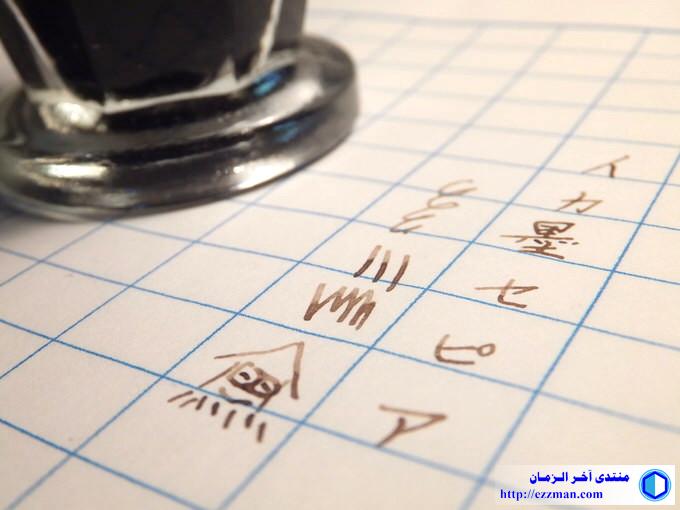 イカ墨セピア
منتدى آخر الزمان
http://ezzman.com